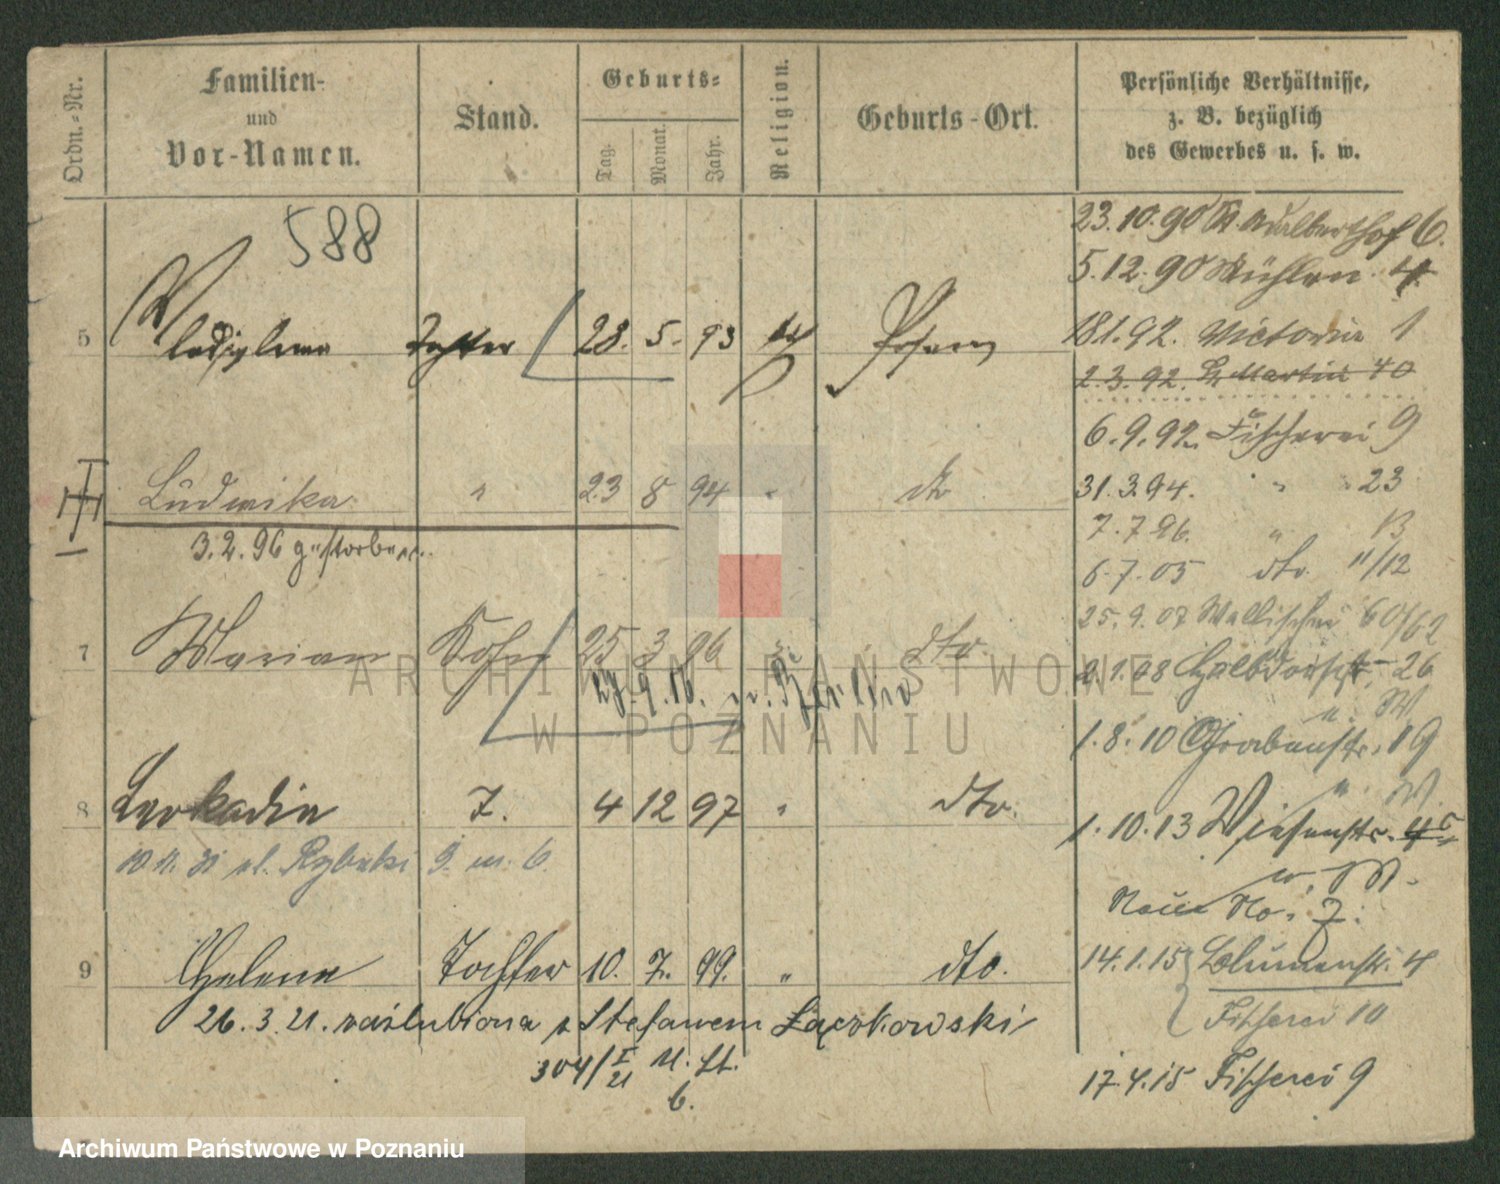 Ordn.-Nr.
Familien-
und
Vor-Namen.
Stand.
Geburts-
Tag.
Monat.
Jahr.
Religion.
Geburts-Ort.
Persönliche Verhältnisse,
z. B. bezüglich
des Gewerbes u. s. w.
588
5 Tochter 28. 5. 93 Posen
Ludwika " 23 8 94 " dto
3.2.96 gestorben.
7 Marian Sohn 25 3 96 " dto.
8 Leokadia T. 4 12 97 " dto.
9 Helena Tochter 10. 7. 99. " dto.
26. 3. 21. zaślubiona z Stefanem Łączkowski
304/I/21 U. St.
6.
23.10.90 6.
5.12.90 Mühlen 4
18.1.92. Victoria 1
2.3.92. St Martin 40
6.9.92. Fischerei 9
31.3.94. " " 23
7.7.96. "
6.7.05 dto. 11/12
25.9.07 Wallischei 60/62
2.1.08 Halbdorfstr. 26
1.8.10 Grabenstr. 19
1.10.13 Wiesenstr.
Neue No. 7.
14.1.15 Blumenstr. 4
Fischerei 10
17.4.15 Fischerei 9
ARCHIWUM PAŃSTWOWE
W POZNANIU
Archiwum Państwowe w Poznaniu